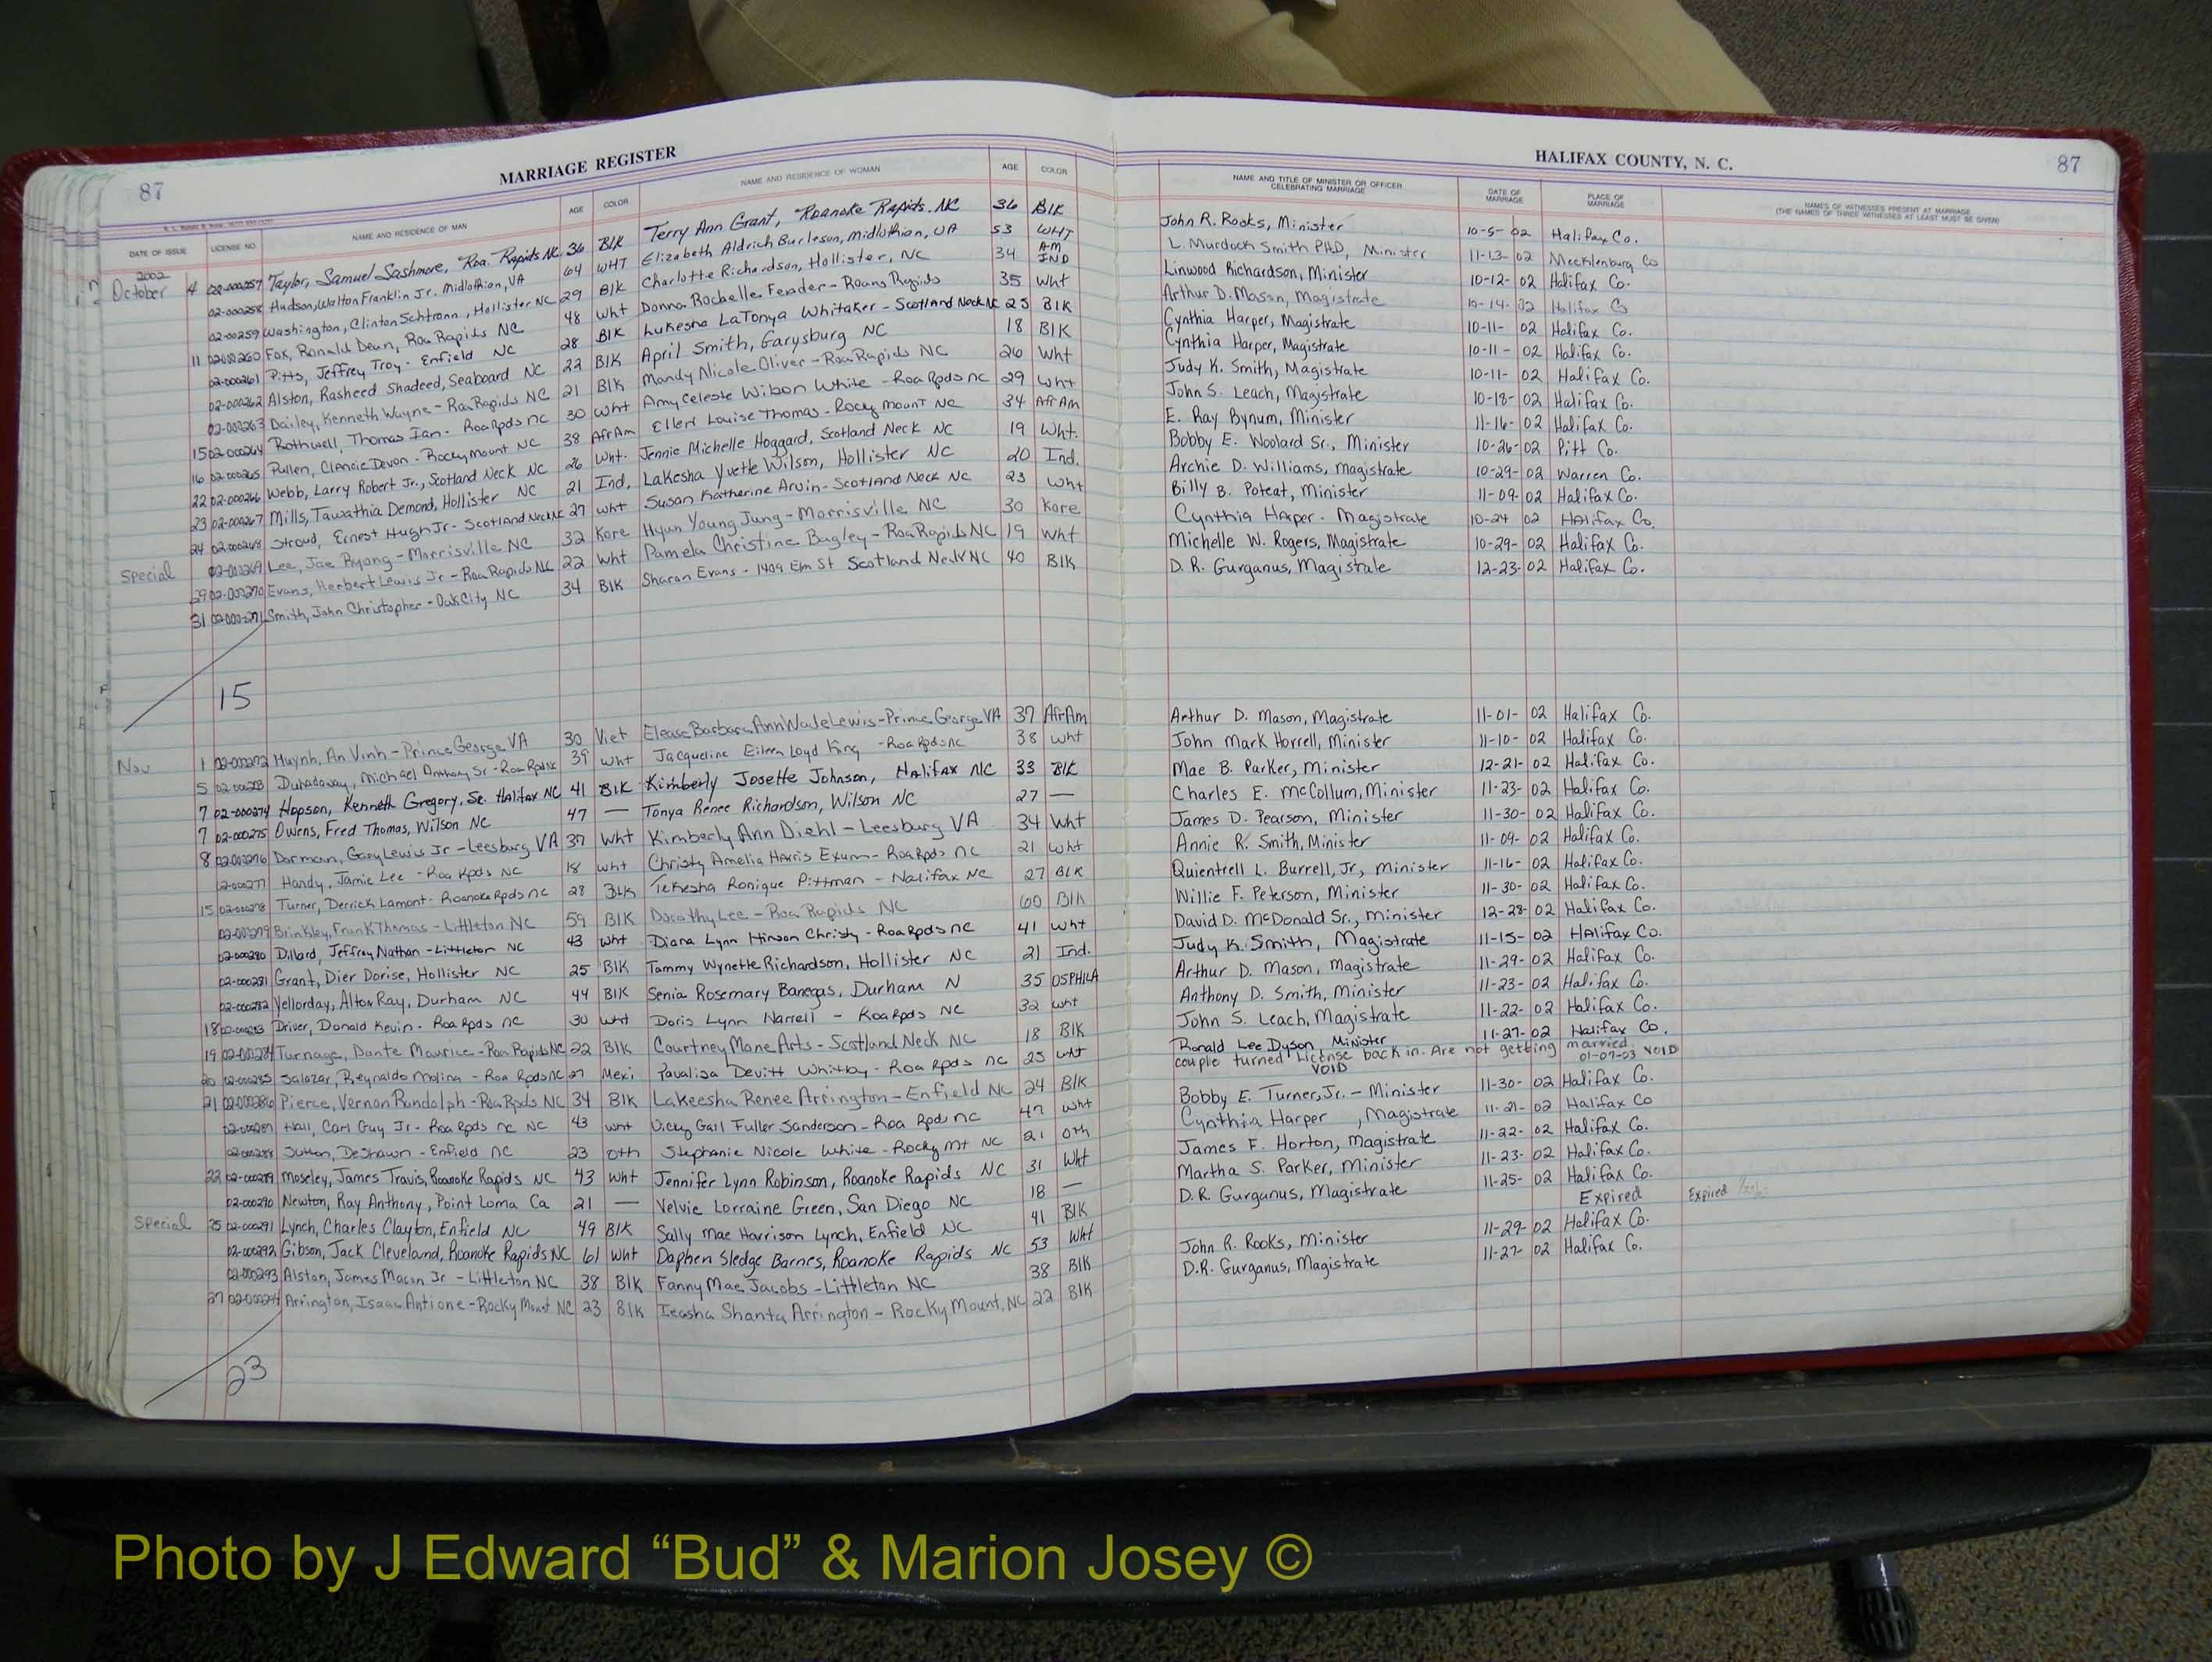 87
MARRIAGE REGISTER
DATE OF ISSUE LICENSE NO. NAME AND RESIDENCE OF MAN AGE COLOR NAME AND RESIDENCE OF WOMAN AGE COLOR
HALIFAX COUNTY, N. C.
87
NAME AND TITLE OF MINISTER OR OFFICER CELEBRATING MARRIAGE DATE OF MARRIAGE PLACE OF MARRIAGE NAMES OF WITNESSES PRESENT AT MARRIAGE
(THE NAMES OF THREE WITNESSES AT LEAST MUST BE GIVEN)
2002
October 4 02-000257 Taylor, Samuel Sashmore, Roa. Rapids NC 36 Blk Terry Ann Grant, Roanoke Rapids, NC 36 Blk John R. Rooks, Minister 10-5-02 Halifax Co.
02-000258 Hudson, Walton Franklin Jr. Midlothian, VA 64 WHT Elizabeth Aldrich Burleson, Midlothian, VA 53 WHT L. Murdock Smith PHD, Minister 11-13-02 Mecklenburg Co
02-000259 Washington, Clinton Schtronn, Hollister NC 29 Blk Charlotte Richardson, Hollister, NC 34 AM IND Linwood Richardson, Minister 10-12-02 Halifax Co.
11 02-000260 Fox, Ronald Dean, Roa Rapids NC 48 Wht Donna Rochelle Feader - Roans Rapids 35 Wht Arthur D. Mason, Magistrate 10-14-02 Halifax Co
02-000261 Pitts, Jeffrey Troy - Enfield NC 28 Blk Lukesha LaTonya Whitaker - Scotland Neck NC 25 Blk Cynthia Harper, Magistrate 10-11-02 Halifax Co.
02-000262 Alston, Rasheed Shadeed, Seaboard NC 22 Blk April Smith, Garysburg NC 18 Blk Cynthia Harper, Magistrate 10-11-02 Halifax Co.
02-000263 Dailey, Kenneth Wayne - Roa Rapids NC 21 Blk Mandy Nicole Oliver - Roa Rapids NC 26 Wht Judy K. Smith, Magistrate 10-11-02 Halifax Co.
15 02-000264 Rothwell, Thomas Ian - Roa Rpds nc 30 Wht Amy Celeste Wilson White - Roa Rpds nc 29 Wht John S. Leach, Magistrate 10-18-02 Halifax Co.
16 02-000265 Pullen, Clancie Devon - Rocky Mount NC 38 AfrAm Ellen Louise Thomas - Rocky Mount NC 34 AfrAm E. Ray Bynum, Minister 11-16-02 Halifax Co.
22 02-000266 Webb, Larry Robert Jr., Scotland Neck NC 26 Wht. Jennie Michelle Hoggard, Scotland Neck NC 19 Wht. Bobby E. Woolard Sr., Minister 10-26-02 Pitt Co.
23 02-000267 Mills, Tawathia Demond, Hollister NC 21 Ind. Lakesha Yvette Wilson, Hollister NC 20 Ind. Archie D. Williams, Magistrate 10-29-02 Warren Co.
24 02-000268 Stroud, Ernest Hugh Jr - Scotland Neck NC 27 Wht Susan Katherine Arvin - Scotland Neck NC 23 Wht Billy B. Poteat, Minister 11-09-02 Halifax Co.
Special 02-000269 Lee, Jae Byong - Morrisville NC 32 Kore Hyun Young Jung - Morrisville NC 30 Kore Cynthia Harper - Magistrate 10-24 02 Halifax Co.
29 02-000270 Evans, Herbert Lewis Jr - Roa Rapids NC 22 Wht Pamela Christine Bagley - Roa Rapids NC 19 Wht Michelle W. Rogers, Magistrate 10-29-02 Halifax Co.
31 02-000271 Smith, John Christopher - Oak City NC 34 Blk Sharon Evans - 1409 Elm St Scotland Neck NC 40 Blk D. R. Gurganus, Magistrate 12-23-02 Halifax Co.
15
Nov 1 02-000272 Huynh, An Vinh - Prince George VA 30 Viet Elease Barbara Ann Wade Lewis - Prince George VA 37 AfrAm Arthur D. Mason, Magistrate 11-01-02 Halifax Co.
5 02-000273 Duhadaway, Michael Anthony Sr - Roa Rpds NC 39 Wht Jacqueline Eileen Loyd King - Roa Rpds nc 38 Wht John Mark Horrell, Minister 11-10-02 Halifax Co.
7 02-000274 Hopson, Kenneth Gregory, Sr. Halifax NC 41 Blk Kimberly Josette Johnson, Halifax NC 33 Blk Mae B. Parker, Minister 12-21-02 Halifax Co.
7 02-000275 Owens, Fred Thomas, Wilson NC 47 — Tonya Renee Richardson, Wilson NC 27 — Charles E. McCollum, Minister 11-23-02 Halifax Co.
8 02-000276 Dorman, Gary Lewis Jr - Leesburg VA 37 Wht Kimberly Ann Diehl - Leesburg VA 34 Wht James D. Pearson, Minister 11-30-02 Halifax Co.
02-000277 Handy, Jamie Lee - Roa Rpds NC 18 Wht Christy Amelia Harris Exum - Roa Rpds nc 21 Wht Annie R. Smith, Minister 11-09-02 Halifax Co.
15 02-000278 Turner, Derrick Lamont - Roanoke Rpds nc 28 Blk Tekesha Ronique Pittman - Halifax NC 27 Blk Quientrell L. Burrell, Jr, Minister 11-16-02 Halifax Co.
02-000279 Brinkley, Frank Thomas - Littleton NC 59 Blk Dorothy Lee - Roa Rapids NC 60 Blk Willie F. Peterson, Minister 11-30-02 Halifax Co.
02-000280 Dillard, Jeffrey Nathan - Littleton NC 43 Wht Diana Lynn Hinson Christy - Roa Rpds nc 41 Wht David D. McDonald Sr., Minister 12-28-02 Halifax Co.
02-000281 Grant, Dier Dorise, Hollister NC 25 Blk Tammy Wynette Richardson, Hollister NC 21 Ind. Judy K. Smith, Magistrate 11-15-02 Halifax Co.
02-000282 Yellorday, Alton Ray, Durham NC 44 Blk Senia Rosemary Banegas, Durham N 35 Arthur D. Mason, Magistrate 11-29-02 Halifax Co.
18 02-000283 Driver, Donald Kevin - Roa Rpds nc 30 Wht Doris Lynn Harrell - Roa Rpds NC 32 Wht Anthony D. Smith, Minister 11-23-02 Halifax Co.
19 02-000284 Turnage, Dante Maurice - Roa Rapids NC 22 Blk Courtney Mone Arts - Scotland Neck NC 18 Blk John S. Leach, Magistrate 11-22-02 Halifax Co.
Ronald Lee Dyson, Minister 11-27-02 Halifax Co.
20 02-000285 Salazar, Reynaldo Molina - Roa Rpds NC 27 Mexi Pavalisa Devitt Whitby - Roa Rpds nc 25 Wht couple turned License back in. Are not getting married
VOID 01-07-03 VOID
21 02-000286 Pierce, Vernon Rundolph - Roa Rpds NC 34 Blk Lakeesha Renee Arrington - Enfield NC 24 Blk Bobby E. Turner, Jr. - Minister 11-30-02 Halifax Co.
02-000287 Hall, Carl Guy Jr - Roa Rpds nc NC 43 Wht Vicky Gail Fuller Sanderson - Roa Rpds nc 47 Wht Cynthia Harper, Magistrate 11-21-02 Halifax Co
02-000288 Sutton, DeShawn - Enfield nc 23 Oth Stephanie Nicole White - Rocky Mt NC 21 Oth James F. Horton, Magistrate 11-22-02 Halifax Co.
22 02-000289 Moseley, James Travis, Roanoke Rapids NC 43 Wht Jennifer Lynn Robinson, Roanoke Rapids NC 31 Wht Martha S. Parker, Minister 11-23-02 Halifax Co.
02-000290 Newton, Ray Anthony, Point Loma Ca 21 — Velvie Lorraine Green, San Diego NC 18 — D.R. Gurganus, Magistrate 11-25-02 Halifax Co.
Special 25 02-000291 Lynch, Charles Clayton, Enfield NC 49 Blk Sally Mae Harrison Lynch, Enfield NC 41 Blk Expired Expired
02-000292 Gibson, Jack Cleveland, Roanoke Rapids NC 61 Wht Daphen Sledge Barnes, Roanoke Rapids NC 53 Wht 11-29-02 Halifax Co.
02-000293 Alston, James Macon Jr - Littleton NC 38 Blk Fanny Mae Jacobs - Littleton NC 38 Blk John R. Rooks, Minister 11-27-02 Halifax Co.
27 02-000294 Arrington, Isaac Antione - Rocky Mount NC 23 Blk Ieasha Shanta Arrington - Rocky Mount, NC 22 Blk D.R. Gurganus, Magistrate
23
Photo by J Edward “Bud” & Marion Josey ©